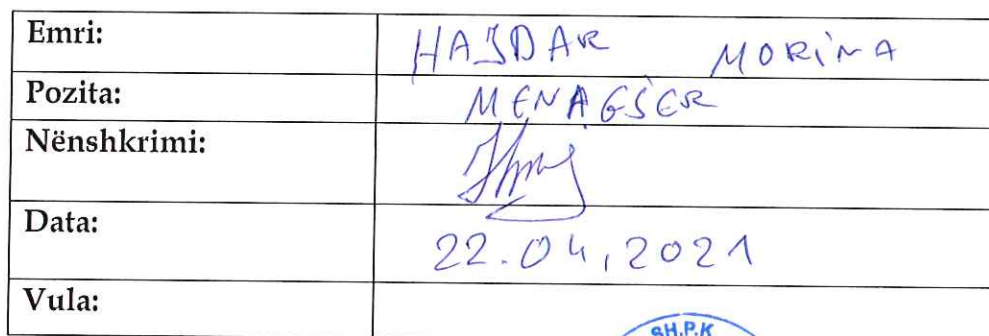 Emri: HAJDAR MORINA
Pozita: MENAGJER
Nënshkrimi:
Data: 22.04,2021
Vula:
SH.P.K